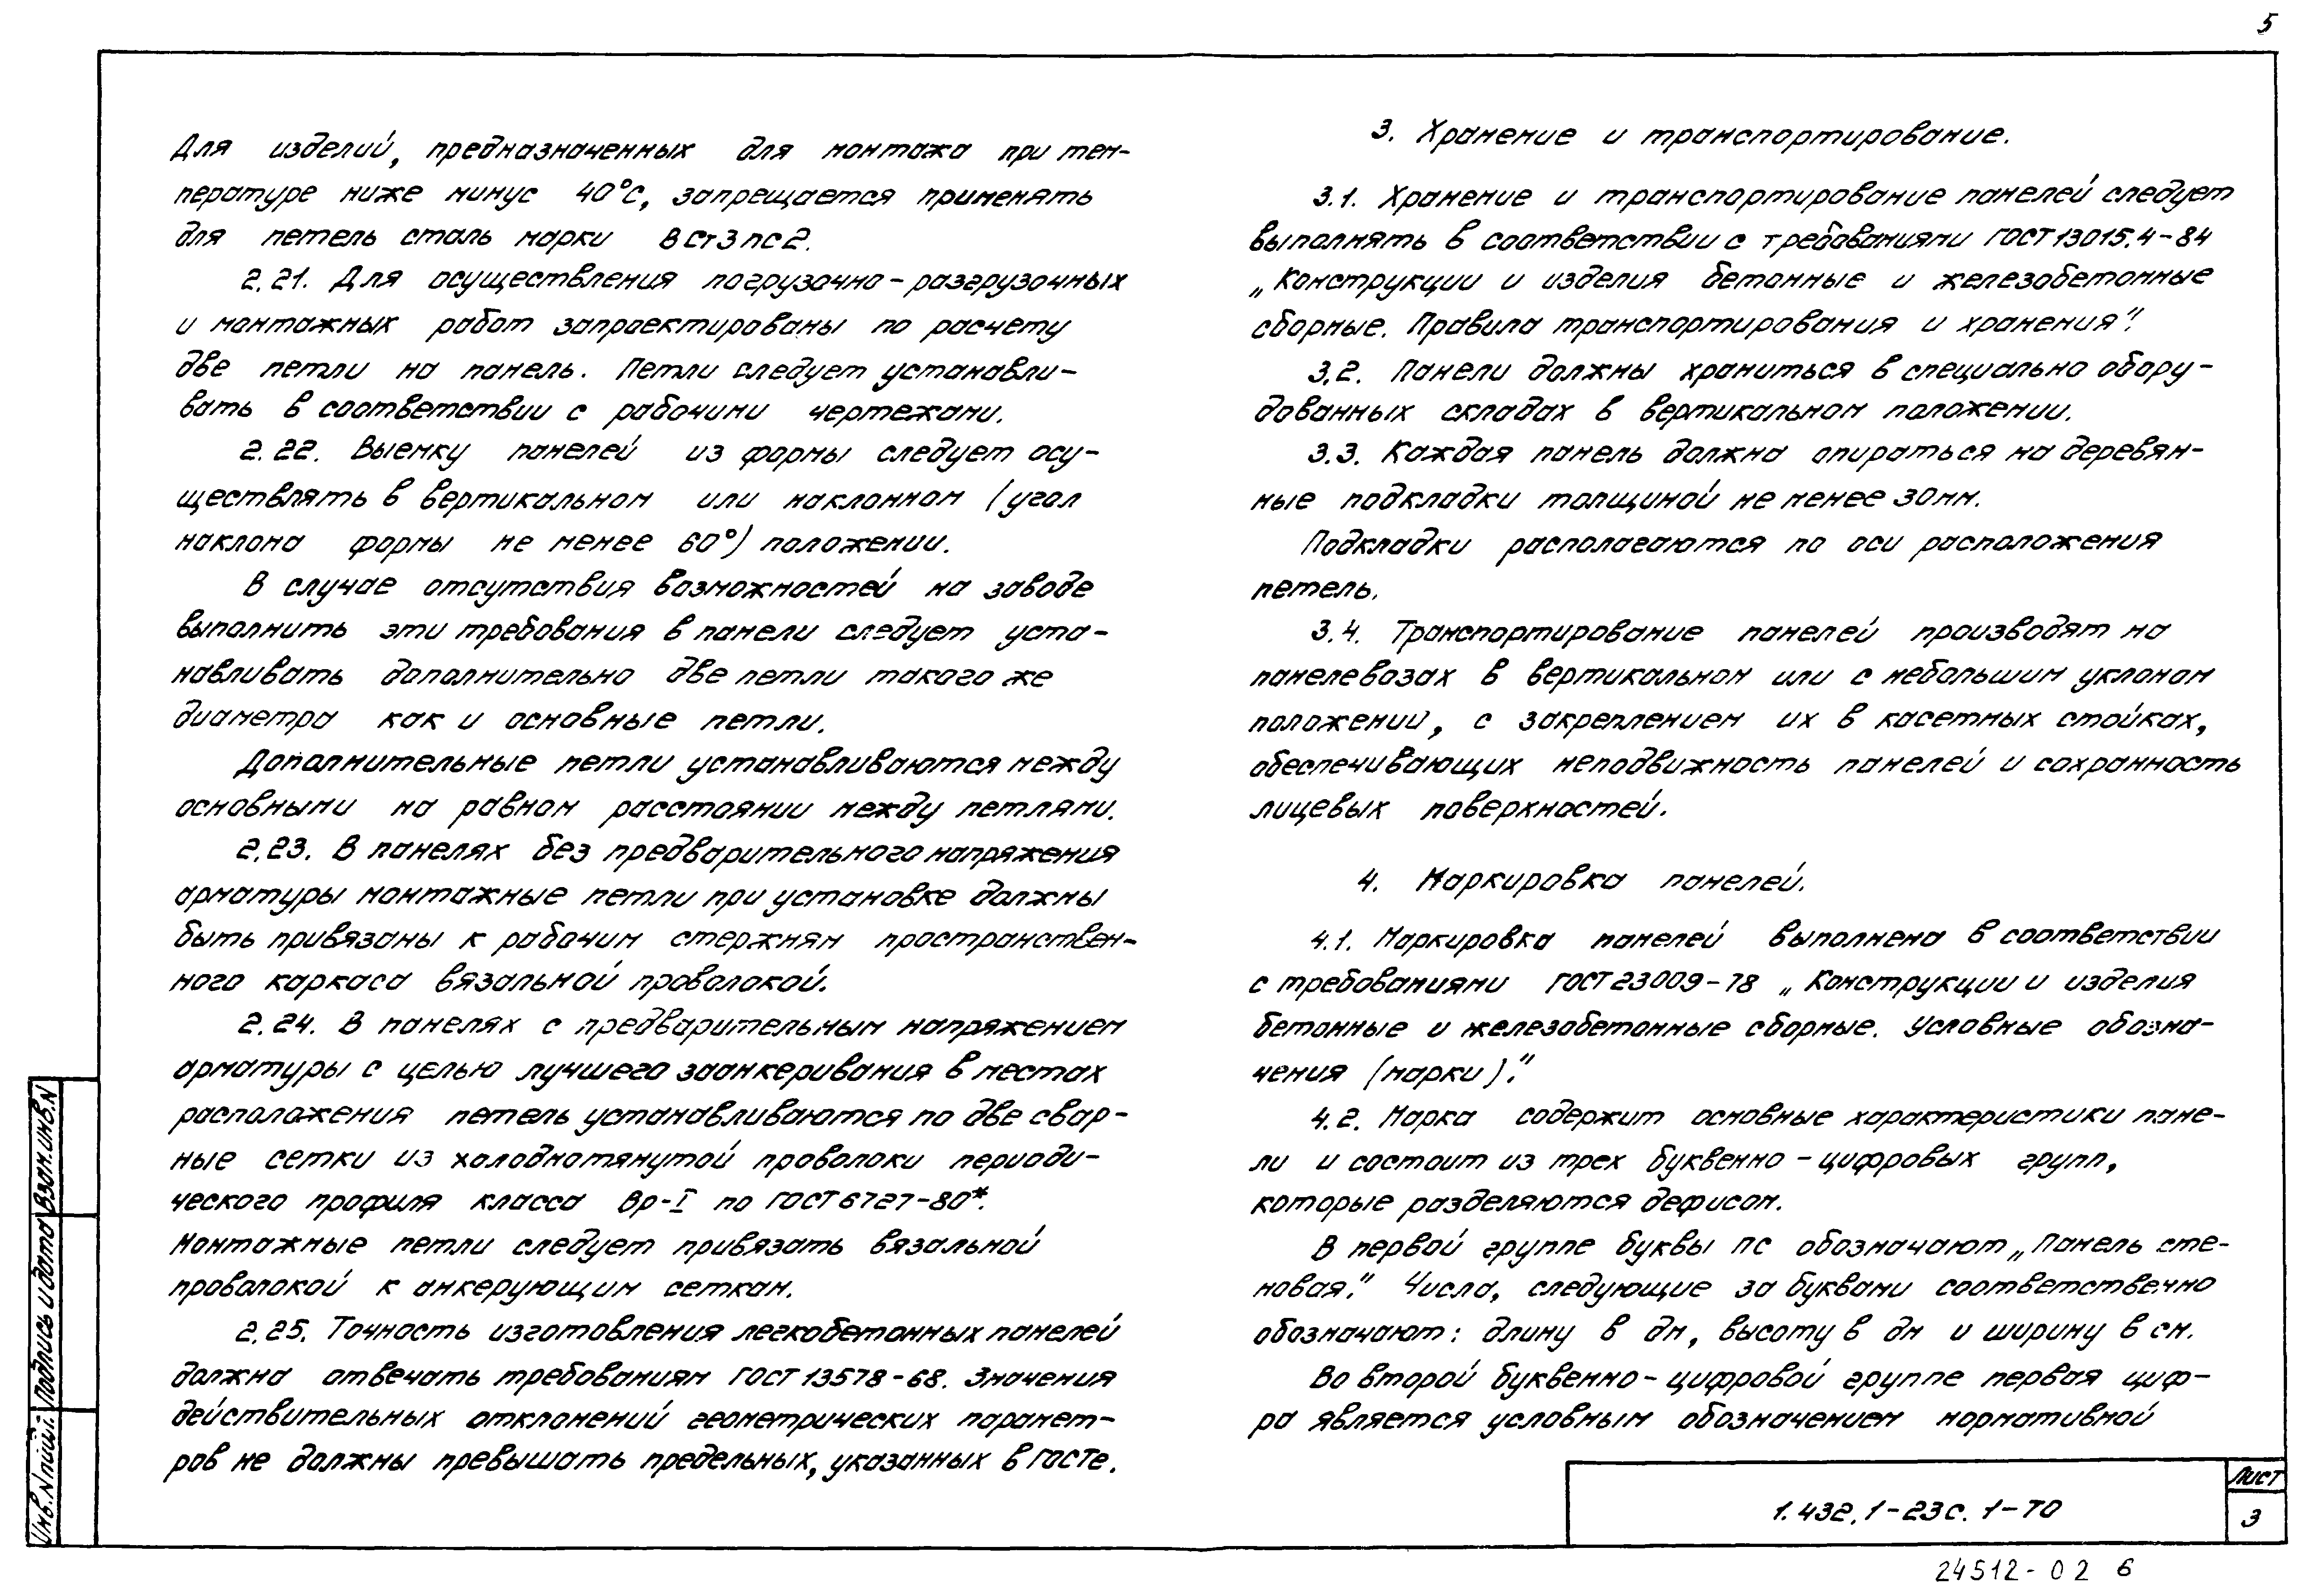 5
Для изделий, предназначенных для монтажа при тем-
пературе ниже минус 40°С, запрещается применять
для петель сталь марки ВСт3пс2.
2.21. Для осуществления погрузочно-разгрузочных
и монтажных работ запроектированы по расчету
две петли на панель. Петли следует устанавли-
вать в соответствии с рабочими чертежами.
2.22. Выемку панелей из формы следует осу-
ществлять в вертикальном или наклонном (угол
наклона формы не менее 60°) положении.
В случае отсутствия возможностей на заводе
выполнить эти требования в панели следует уста-
навливать дополнительно две петли такого же
диаметра как и основные петли.
Дополнительные петли устанавливаются между
основными на равном расстоянии между петлями.
2.23. В панелях без предварительного напряжения
арматуры монтажные петли при установке должны
быть привязаны к рабочим стержням пространствен-
ного каркаса вязальной проволокой.
2.24. В панелях с предварительным напряжением
арматуры с целью лучшего заанкеривания в местах
расположения петель устанавливаются по две свар-
ные сетки из холоднотянутой проволоки периоди-
ческого профиля класса Вр-I по ГОСТ 6727-80*.
Монтажные петли следует привязать вязальной
проволокой к анкерующим сеткам.
2.25. Точность изготовления легкобетонных панелей
должна отвечать требованиям ГОСТ 13578-68. Значения
действительных отклонений геометрических парамет-
ров не должны превышать предельных, указанных в ГОСТе.
3. Хранение и транспортирование.
3.1. Хранение и транспортирование панелей следует
выполнять в соответствии с требованиями ГОСТ 13015.4-84
„Конструкции и изделия бетонные и железобетонные
сборные. Правила транспортирования и хранения".
3.2. Панели должны храниться в специально обору-
дованных складах в вертикальном положении.
3.3. Каждая панель должна опираться на деревян-
ные подкладки толщиной не менее 30мм.
Подкладки располагаются по оси расположения
петель.
3.4. Транспортирование панелей производят на
панелевозах в вертикальном или с небольшим уклоном
положении, с закреплением их в касетных стойках,
обеспечивающих неподвижность панелей и сохранность
лицевых поверхностей.
4. Маркировка панелей.
4.1. Маркировка панелей выполнена в соответствии
с требованиями ГОСТ 23009-78 „Конструкции и изделия
бетонные и железобетонные сборные. Условные обозна-
чения (марки)."
4.2. Марка содержит основные характеристики пане-
ли и состоит из трех буквенно-цифровых групп,
которые разделяются дефисом.
В первой группе буквы ПС обозначают „Панель сте-
новая." Числа, следующие за буквами соответственно
обозначают: длину в дм, высоту в дм и ширину в см.
Во второй буквенно-цифровой группе первая циф-
ра является условным обозначением нормативной
Инв.Nпдл. Подпись и дата Взам.инв.N
1.432.1-23с.1-ТО
Лист
3
24512-02 6